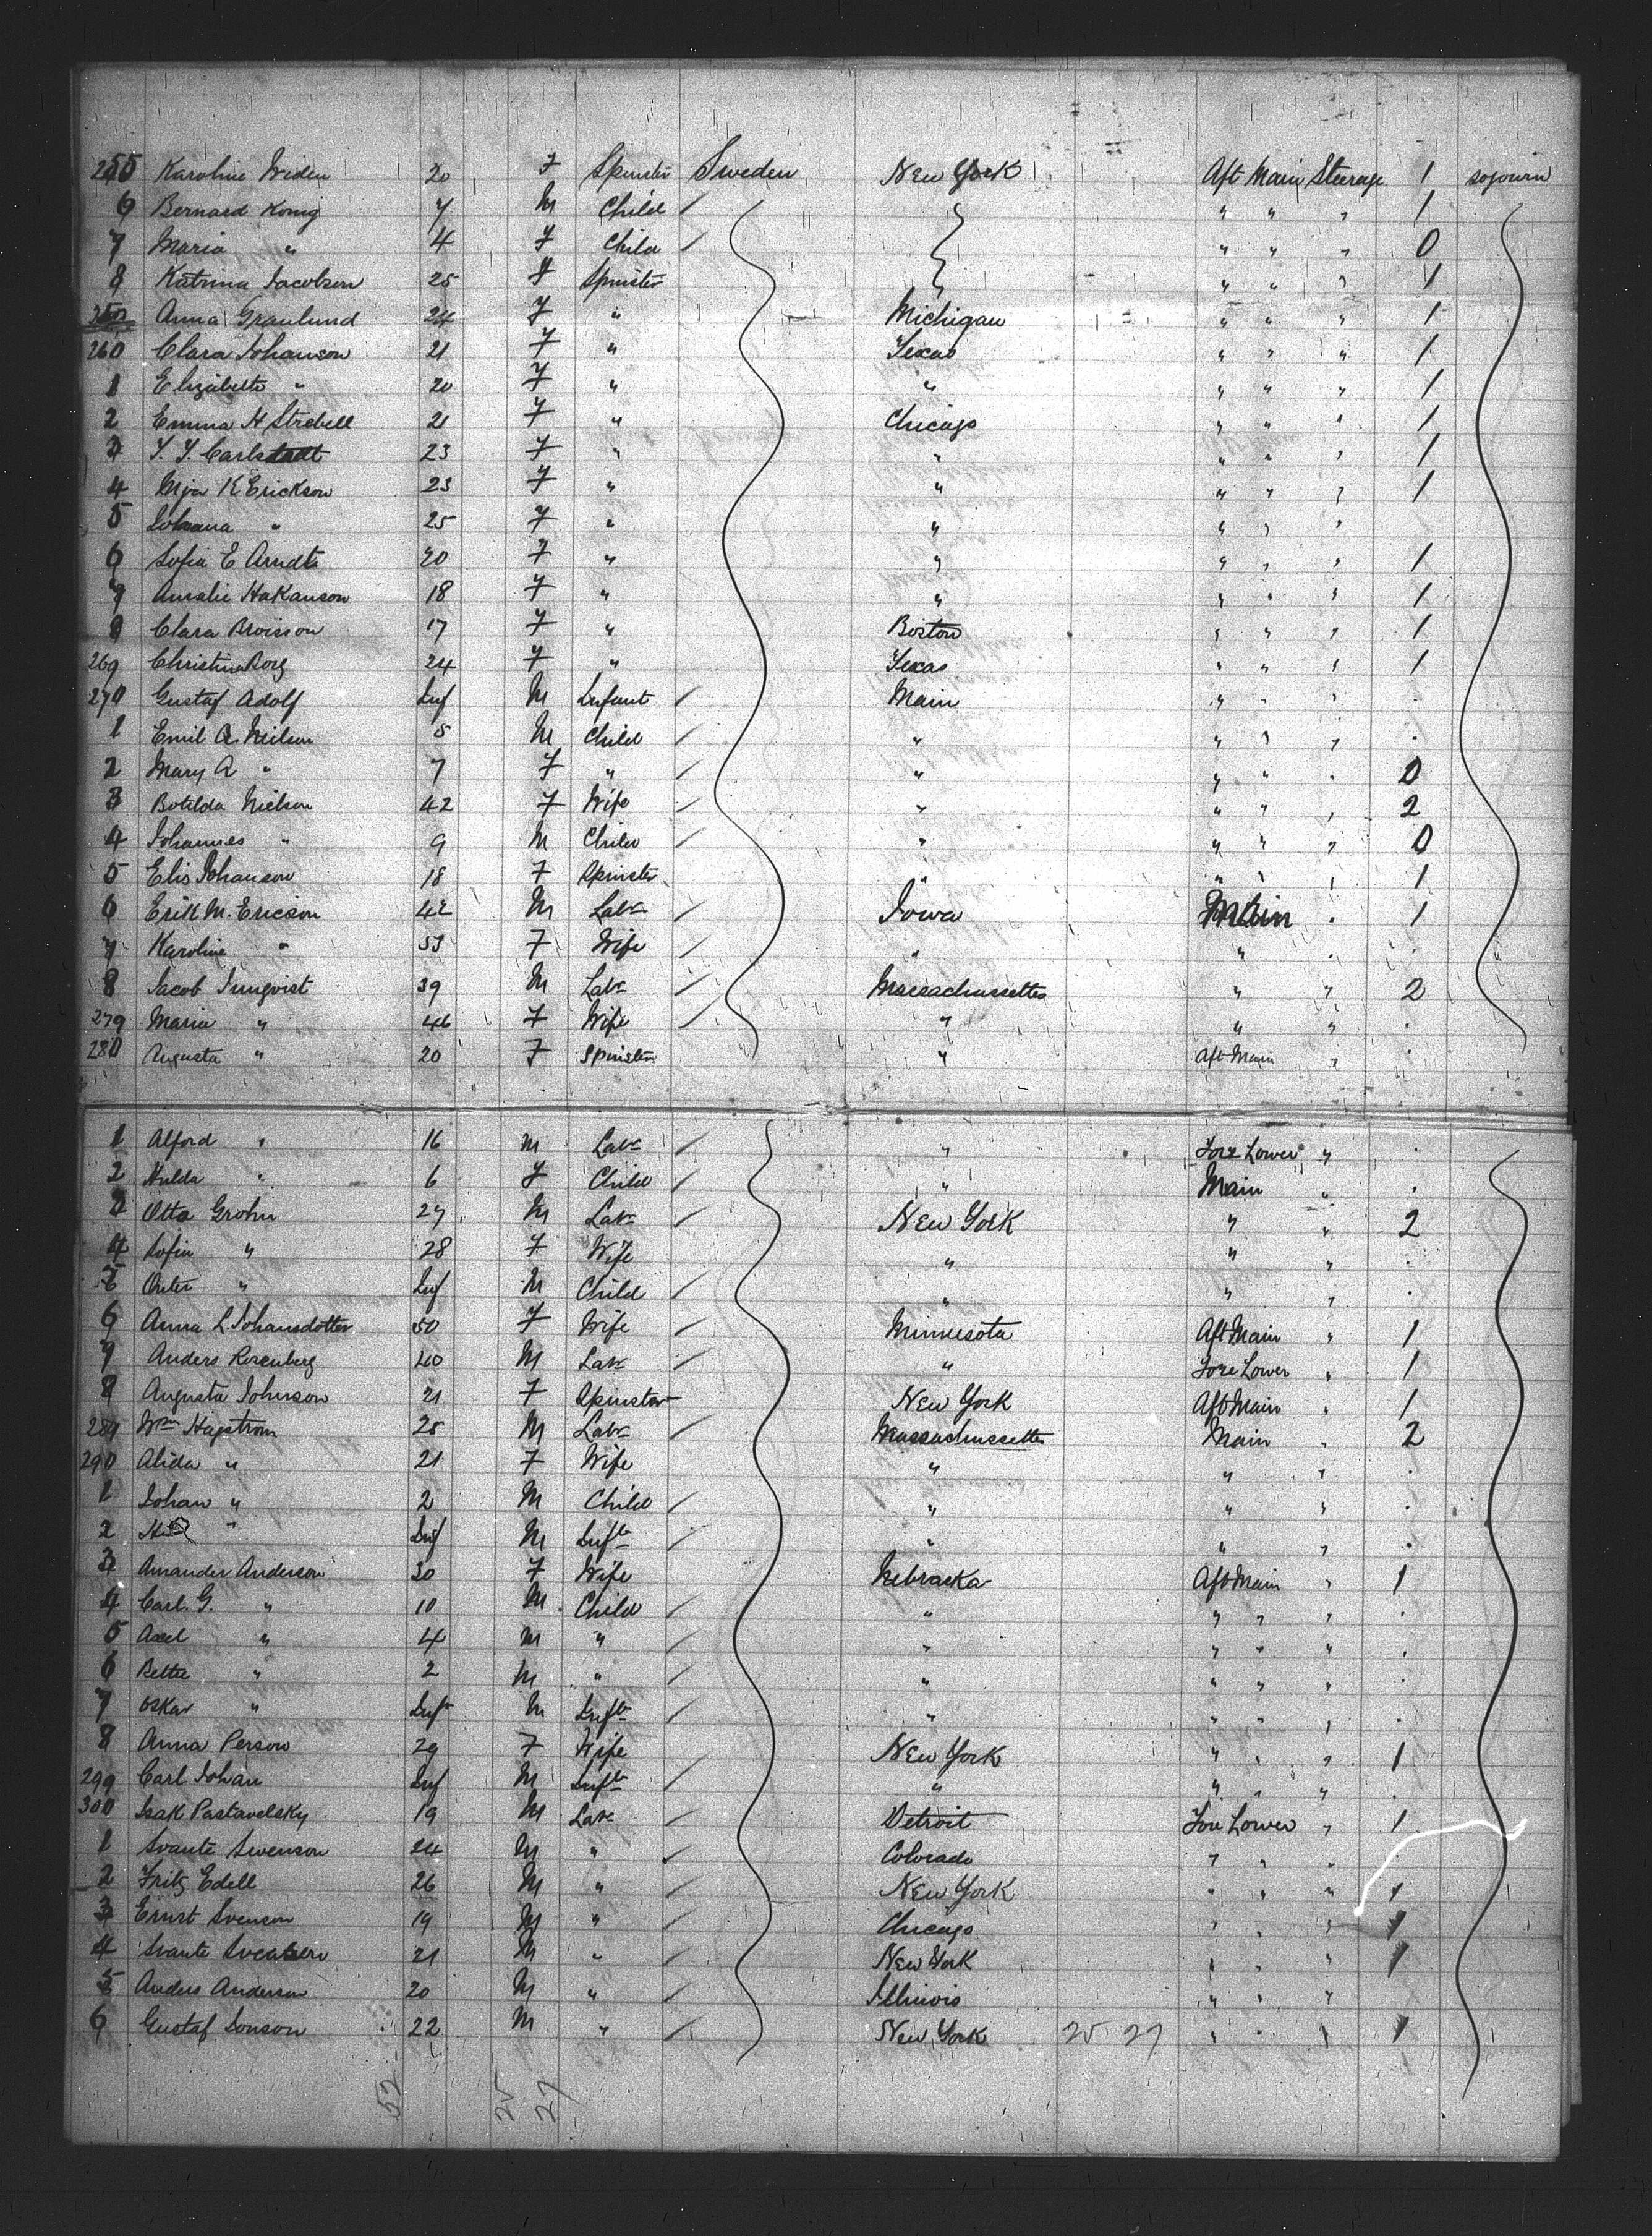 255 Karoline Widen 20 F Spinster Sweden New York Aft Main Steerage 1 sojourn
6 Bernard Konig 7 M Child " " " 1
7 Maria " 4 F Child " " " 0
8 Katrina Jacobson 25 F Spinster " " " 1
259 Anna Granlund 24 F " Michigan " " " 1
260 Clara Johanson 21 F " Texas " " " 1
1 Elizabeth " 20 F " " " " " 1
2 Emma H Strebell 21 F " Chicago " " " 1
3 Carlstadt 23 F " " " " " 1
4 K Erickson 23 F " " " " " 1
5 Johana " 25 F " " " " "
6 Sofia E Arndt 20 F " " " " " 1
7 Amalie Hakanson 18 F " " " " " 1
8 Clara 17 F " Boston " " " 1
269 Christina Borg 24 F " Texas " " " 1
270 Gustaf Adolf Inf M Infant Main " " " .
1 Emil A. Neilson 5 M Child " " " " .
2 Mary A " 7 F " " " " " 0
3 Botilda Nielson 42 F Wife " " " " 2
4 Johannes " 9 M Child " " " " 0
5 Elis Johanson 18 F Spinster " " " " 1
6 Erik M. Ericson 42 M Labr Iowa Main " 1
7 Karoline " 53 F Wife " " " .
8 Jacob Sunqvist 39 M Labr Massachussettes " " 2
279 Maria " 46 F Wife " " " .
280 Augusta " 20 F Spinster " Aft Main " .
1 Alford " 16 M Labr " Fore Lower " .
2 Hulda " 6 F Child " Main " .
3 Otto Grohn 27 M Labr New York " " 2
4 Sofia " 28 F Wife " " " .
5 " Inf M Child " " " .
6 Anna L. Johansdotter 50 F Wife Minnesota Aft Main " 1
7 Anders Rosenberg 40 M Labr " Fore Lower " 1
8 Augusta Johnson 21 F Spinster New York Aft Main " 1
289 Wm Hagstrom 25 M Labr Massachussettes Main " 2
290 Alida " 21 F Wife " " " .
1 Johan " 2 M Child " " " .
2 " Inf M Inft " " " .
3 Amander Anderson 30 F Wife Nebraska Aft Main " 1
4 Carl. G. " 10 M Child " " " " .
5 Axel " 4 M " " " " " .
6 " 2 M " " " " " .
7 Oskar " Inft M Inft " " " " .
8 Anna Person 29 F Wife New York " " " 1
299 Carl Johan Inf M Inft " " " " .
300 Isak Pastavelsky 19 M Labr Detroit Fore Lower " 1
1 Svante Swenson 24 M " Colorado " " "
2 Fritz Edell 26 M " New York " " " 1
3 Ernst Svenson 19 M " Chicago " " " 1
4 Svante 21 M " New York " " " 1
5 Anders Anderson 20 M " Illinois " " "
6 Gustaf Jonson 22 M " New York 25 27 " " " 1
52 25 27